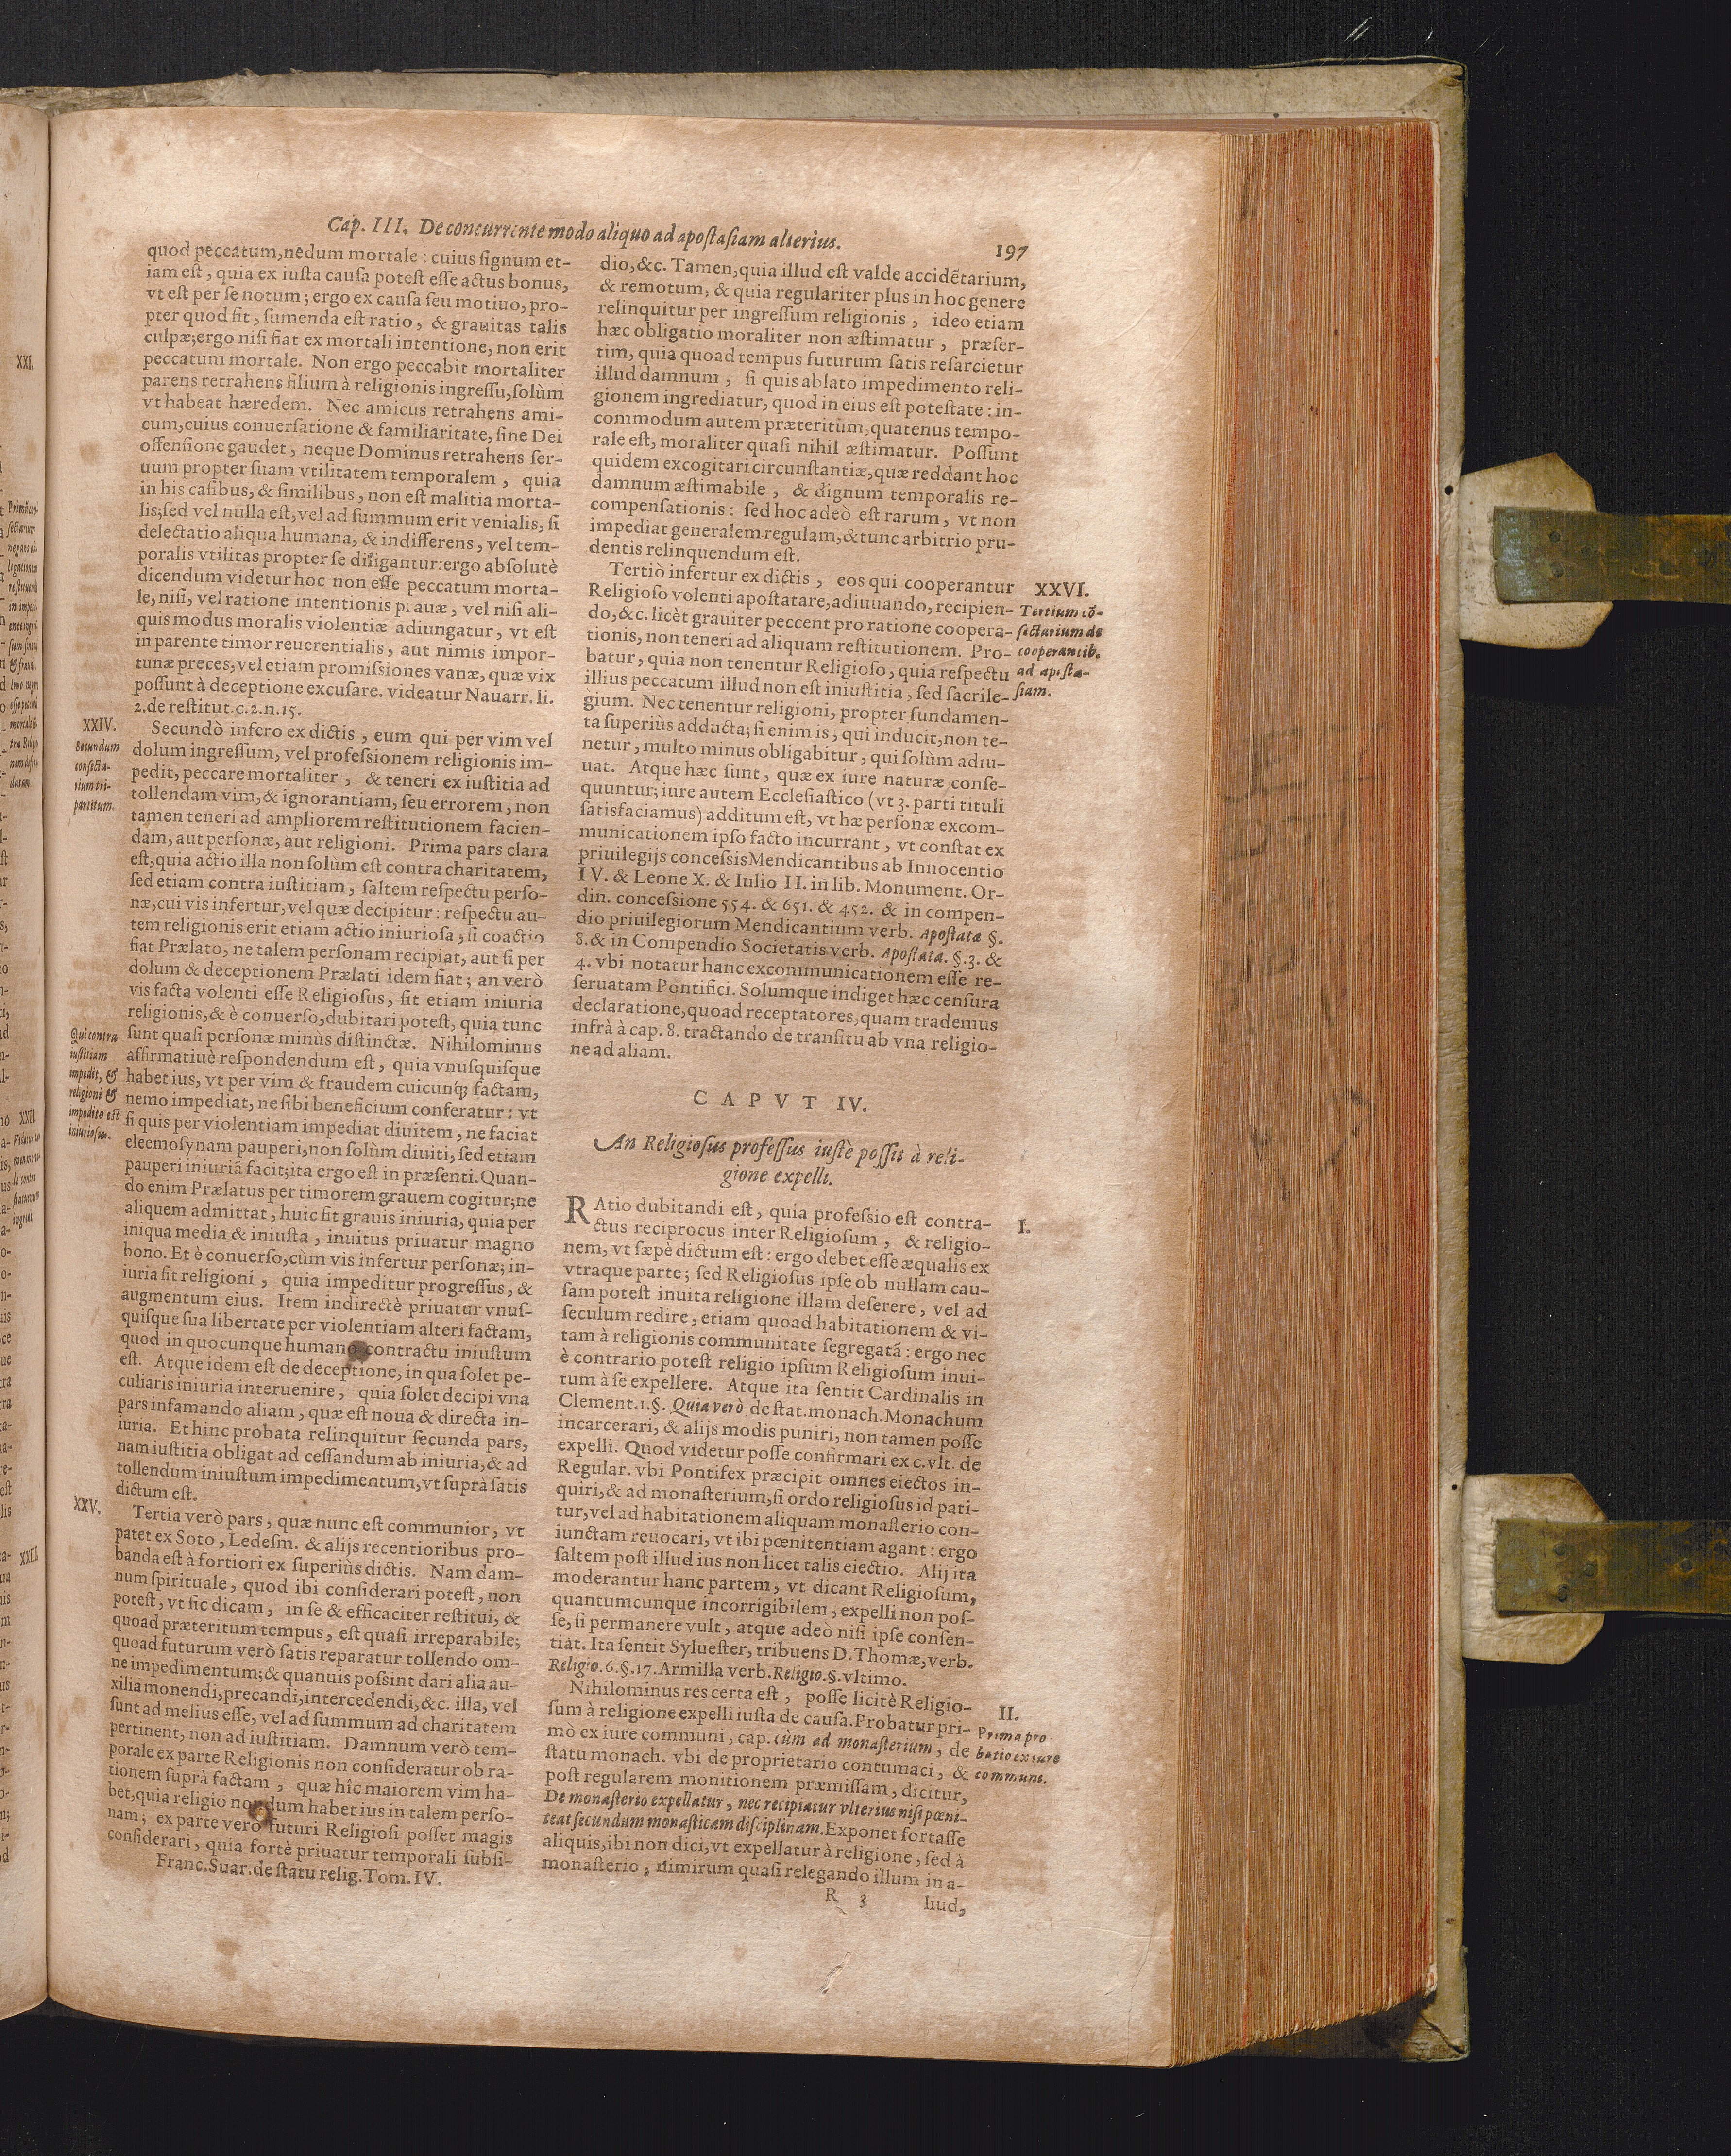 Cap. III. De concurrente modo aliquo ad apostasiam alterius.
197
quod peccatum, nedum mortale: cuius signum et-
iam est, quia ex iusta causa potest esse actus bonus,
vt est per se notum; ergo ex causa seu motiuo, pro-
pter quod fit, sumenda est ratio, & grauitas talis
culpæ; ergo nisi fiat ex mortali intentione, non erit
peccatum mortale. Non ergo peccabit mortaliter
parens retrahens filium à religionis ingressu, solùm
vt habeat hæredem. Nec amicus retrahens ami-
cum, cuius conuersatione & familiaritate, sine Dei
offensione gaudet, neque Dominus retrahens ser-
uum propter suam vtilitatem temporalem, quia
in his casibus, & similibus, non est malitia morta-
lis; sed vel nulla est, vel ad summum erit venialis, si
delectatio aliqua humana, & indifferens, vel tem-
poralis vtilitas propter se diligantur: ergo absolutè
dicendum videtur hoc non esse peccatum morta-
le, nisi, vel ratione intentionis prauæ, vel nisi ali-
quis modus moralis violentiæ adiungatur, vt est
in parente timor reuerentialis, aut nimis impor-
tunæ preces, vel etiam promissiones vanæ, quæ vix
possunt à deceptione excusare. videatur Nauarr. li.
2. de restitut. c. 2. n. 15.
XXIV.
Secundum
consecta-
rium tri-
partitum.
Secundò infero ex dictis, eum qui per vim vel
dolum ingressum, vel professionem religionis im-
pedit, peccare mortaliter, & teneri ex iustitia ad
tollendam vim, & ignorantiam, seu errorem, non
tamen teneri ad ampliorem restitutionem facien-
dam, aut personæ, aut religioni. Prima pars clara
est, quia actio illa non solùm est contra charitatem,
sed etiam contra iustitiam, saltem respectu perso-
næ, cui vis infertur, vel quæ decipitur: respectu au-
tem religionis erit etiam actio iniuriosa, si coactio
fiat Prælato, ne talem personam recipiat, aut si per
dolum & deceptionem Prælati idem fiat; an verò
vis facta volenti esse Religiosus, sit etiam iniuria
religionis, & è conuerso, dubitari potest, quia tunc
sunt quasi personæ minùs distinctæ. Nihilominus
affirmatiuè respondendum est, quia vnusquisque
habet ius, vt per vim & fraudem cuicunq; factam,
nemo impediat, ne sibi beneficium conferatur: vt
si quis per violentiam impediat diuitem, ne faciat
eleemosynam pauperi, non solùm diuiti, sed etiam
pauperi iniuriã facit; ita ergo est in præsenti. Quan-
do enim Prælatus per timorem grauem cogitur; ne
aliquem admittat, huic fit grauis iniuria, quia per
iniqua media & iniusta, inuitus priuatur magno
bono. Et è conuerso, cùm vis infertur personæ; in-
iuria fit religioni, quia impeditur progressus, &
augmentum eius. Item indirectè priuatur vnus-
quisque sua libertate per violentiam alteri factam,
quod in quocunque humano contractu iniustum
est. Atque idem est de deceptione, in qua solet pe-
culiaris iniuria interuenire, quia solet decipi vna
pars infamando aliam, quæ est noua & directa in-
iuria. Et hinc probata relinquitur secunda pars,
nam iustitia obligat ad cessandum ab iniuria, & ad
tollendum iniustum impedimentum, vt suprà satis
dictum est.
Qui contra
iustitiam
impedit, &
religioni &
impedito est
iniuriosus.
XXV.
Tertia verò pars, quæ nunc est communior, vt
patet ex Soto, Ledesm. & alijs recentioribus pro-
banda est à fortiori ex superiùs dictis. Nam dam-
num spirituale, quod ibi considerari potest, non
potest, vt sic dicam, in se & efficaciter restitui, &
quoad præteritum tempus, est quasi irreparabile;
quoad futurum verò satis reparatur tollendo om-
ne impedimentum; & quanuis possint dari alia au-
xilia monendi, precandi, intercedendi, &c. illa, vel
sunt ad melius esse, vel ad summum ad charitatem
pertinent, non ad iustitiam. Damnum verò tem-
porale ex parte Religionis non consideratur ob ra-
tionem suprà factam, quæ hîc maiorem vim ha-
bet, quia religio nondum habet ius in talem perso-
nam; ex parte verò futuri Religiosi posset magis
considerari, quia fortè priuatur temporali subsi-
Franc. Suar. de statu relig. Tom. IV.
dio, &c. Tamen, quia illud est valde accidẽtarium,
& remotum, & quia regulariter plus in hoc genere
relinquitur per ingressum religionis, ideo etiam
hæc obligatio moraliter non æstimatur, præser-
tim, quia quoad tempus futurum satis resarcietur
illud damnum, si quis ablato impedimento reli-
gionem ingrediatur, quod in eius est potestate: in-
commodum autem præteritùm, quatenus tempo-
rale est, moraliter quasi nihil æstimatur. Possunt
quidem excogitari circunstantiæ, quæ reddant hoc
damnum æstimabile, & dignum temporalis re-
compensationis: sed hoc adeò est rarum, vt non
impediat generalem regulam, & tunc arbitrio pru-
dentis relinquendum est.
Tertiò infertur ex dictis, eos qui cooperantur
Religioso volenti apostatare, adiuuando, recipien-
do, &c. licèt grauiter peccent pro ratione coopera-
tionis, non teneri ad aliquam restitutionem. Pro-
batur, quia non tenentur Religioso, quia respectu
illius peccatum illud non est iniustitia, sed sacrile-
gium. Nec tenentur religioni, propter fundamen-
ta superiùs adducta; si enim is, qui inducit, non te-
netur, multo minus obligabitur, qui solùm adiu-
uat. Atque hæc sunt, quæ ex iure naturæ conse-
quuntur; iure autem Ecclesiastico (vt 3. parti tituli
satisfaciamus) additum est, vt hæ personæ excom-
municationem ipso facto incurrant, vt constat ex
priuilegijs concessis Mendicantibus ab Innocentio
IV. & Leone X. & Iulio II. in lib. Monument. Or-
din. concessione 554. & 651. & 452. & in compen-
dio priuilegiorum Mendicantium verb. Apostata §.
8. & in Compendio Societatis verb. Apostata. §. 3. &
4. vbi notatur hanc excommunicationem esse re-
seruatam Pontifici. Solumque indiget hæc censura
declaratione, quoad receptatores, quam trademus
infrà à cap. 8. tractando de transitu ab vna religio-
ne ad aliam.
XXVI.
Tertium cõ-
sectarium de
cooperantib.
ad aposta-
siam.
CAPVT IV.
An Religiosus professus iustè possit à reli-
gione expelli.
I.
RAtio dubitandi est, quia professio est contra-
ctus reciprocus inter Religiosum, & religio-
nem, vt sæpè dictum est: ergo debet esse æqualis ex
vtraque parte; sed Religiosus ipse ob nullam cau-
sam potest inuita religione illam deserere, vel ad
seculum redire, etiam quoad habitationem & vi-
tam à religionis communitate segregatã: ergo nec
è contrario potest religio ipsum Religiosum inui-
tum à se expellere. Atque ita sentit Cardinalis in
Clement. 1. §. Quia verò de stat. monach. Monachum
incarcerari, & alijs modis puniri, non tamen posse
expelli. Quod videtur posse confirmari ex c. vlt. de
Regular. vbi Pontifex præcipit omnes eiectos in-
quiri, & ad monasterium, si ordo religiosus id pati-
tur, vel ad habitationem aliquam monasterio con-
iunctam reuocari, vt ibi pœnitentiam agant: ergo
saltem post illud ius non licet talis eiectio. Alij ita
moderantur hanc partem, vt dicant Religiosum,
quantumcunque incorrigibilem, expelli non pos-
se, si permanere vult, atque adeò nisi ipse consen-
tiat. Ita sentit Syluester, tribuens D. Thomæ, verb.
Religio. 6. §. 17. Armilla verb. Religio. §. vltimo.
II.
Prima pro
batio ex iure
communi.
Nihilominus res certa est, posse licitè Religio-
sum à religione expelli iusta de causa. Probatur pri-
mò ex iure communi, cap. cùm ad monasterium, de
statu monach. vbi de proprietario contumaci, &
post regularem monitionem præmissam, dicitur,
De monasterio expellatur, nec recipiatur vlterius nisi pœni-
teat secundum monasticam disciplinam. Exponet fortasse
aliquis, ibi non dici, vt expellatur à religione, sed à
monasterio, nimirum quasi relegando illum in a-
R 3
liud,